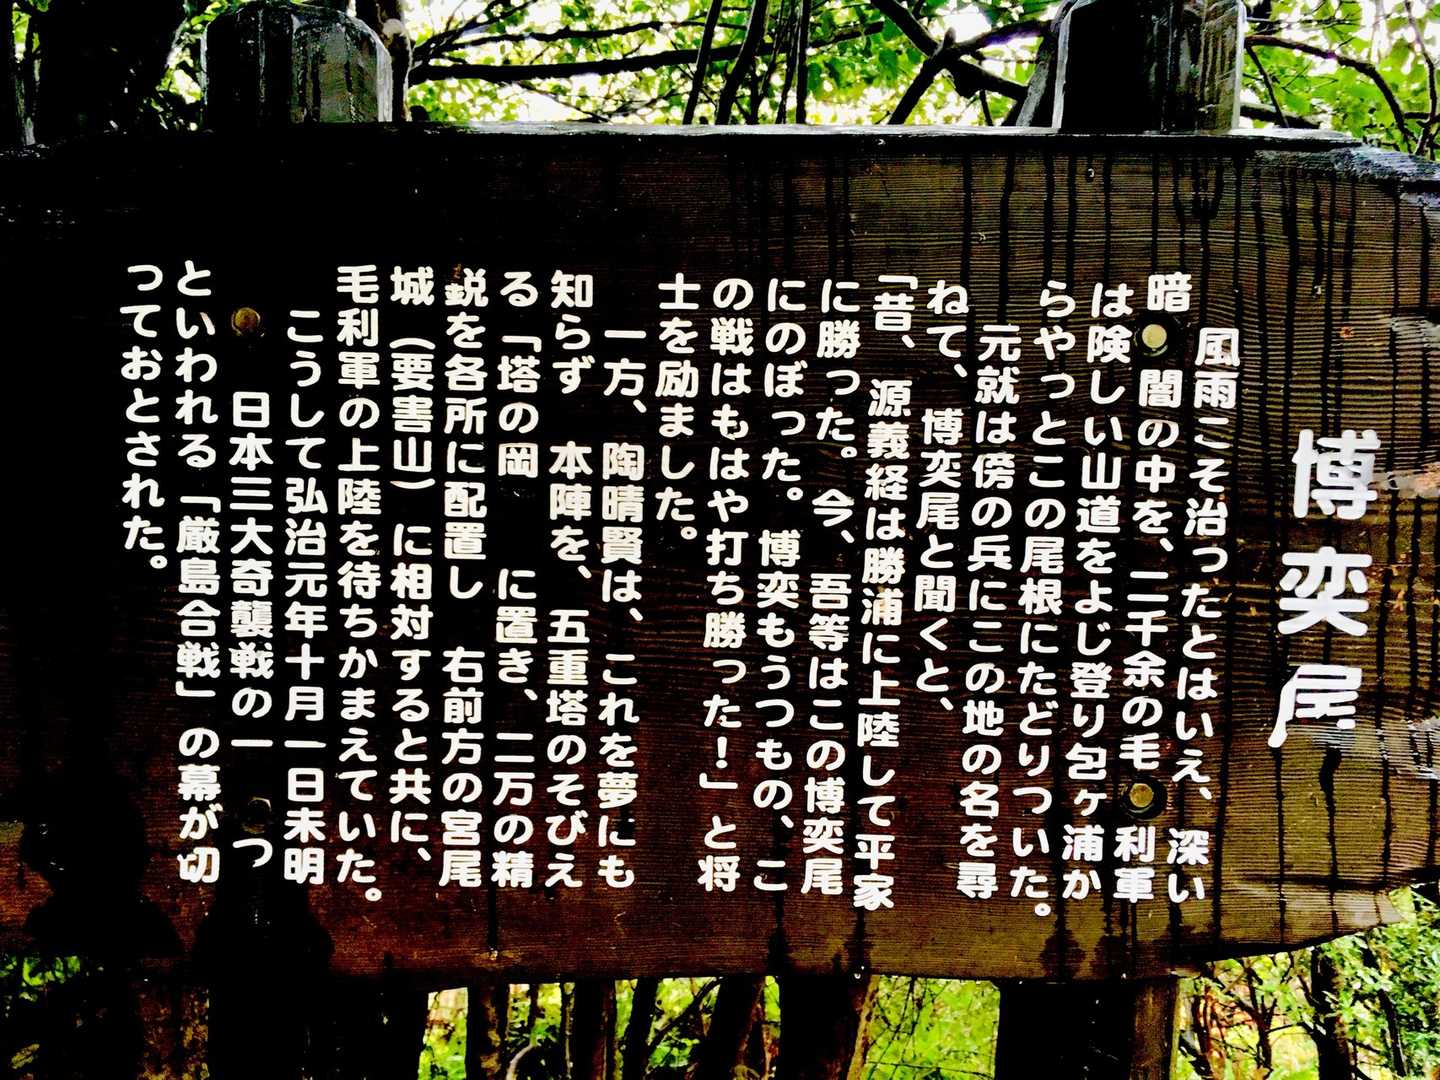 博奕尾
風雨こそ治ったとはいえ、深い
暗闇の中を、二千余の毛利軍
は険しい山道をよじ登り包ヶ浦か
らやっとこの尾根にたどりついた。
元就は傍の兵にこの地の名を尋
ねて、博奕尾と聞くと、
「昔、源義経は勝浦に上陸して平家
に勝った。今、吾等はこの博奕尾
にのぼった。博奕もうつもの、こ
の戦はもはや打ち勝った!」と将
士を励ました。
一方、陶晴賢は、これを夢にも
知らず本陣を、五重塔のそびえ
る「塔の岡に置き、二万の精
鋭を各所に配置し右前方の宮尾
城(要害山)に相対すると共に、
毛利軍の上陸を待ちかまえていた。
こうして弘治元年十月一日未明
日本三大奇襲戦の一つ
といわれる「厳島合戦」の幕が切
っておとされた。